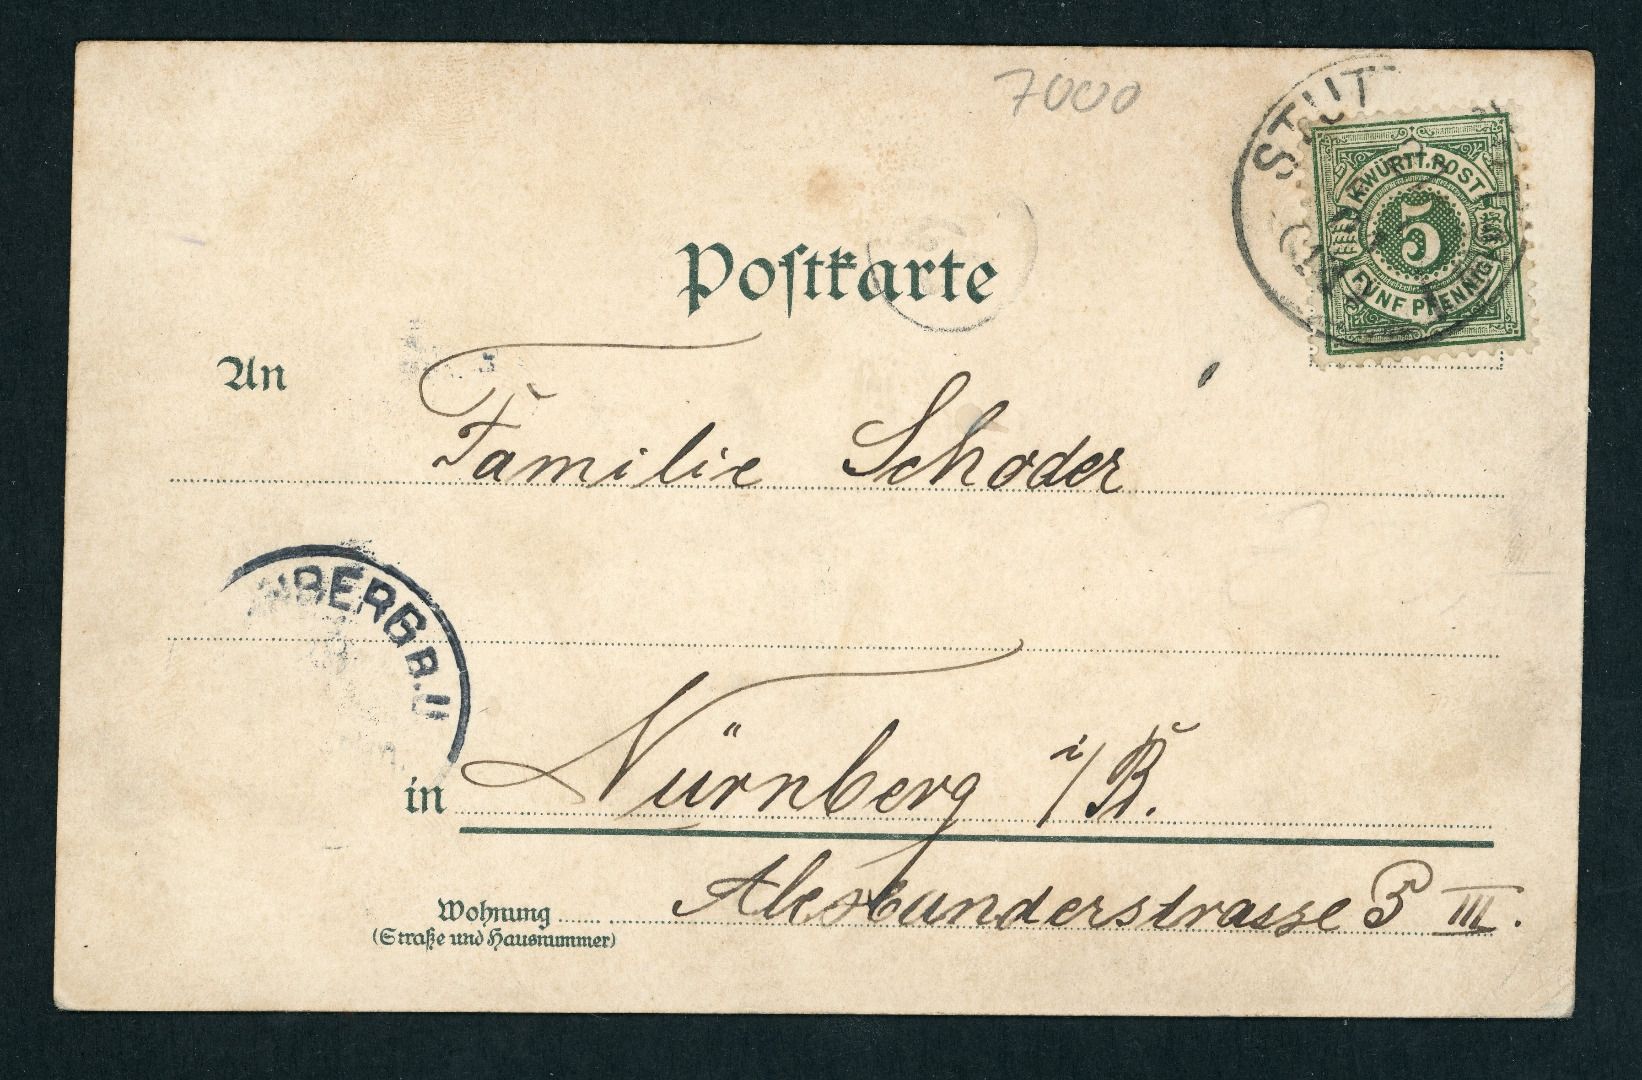 7000
STUT
K. WÜRTT. POST
5
FÜNF PFENNIG
Postkarte
An Familie Schoder
BERG B.II
in Nürnberg i/B.
Wohnung Alexanderstrasse 3 III.
(Straße und Hausnummer)